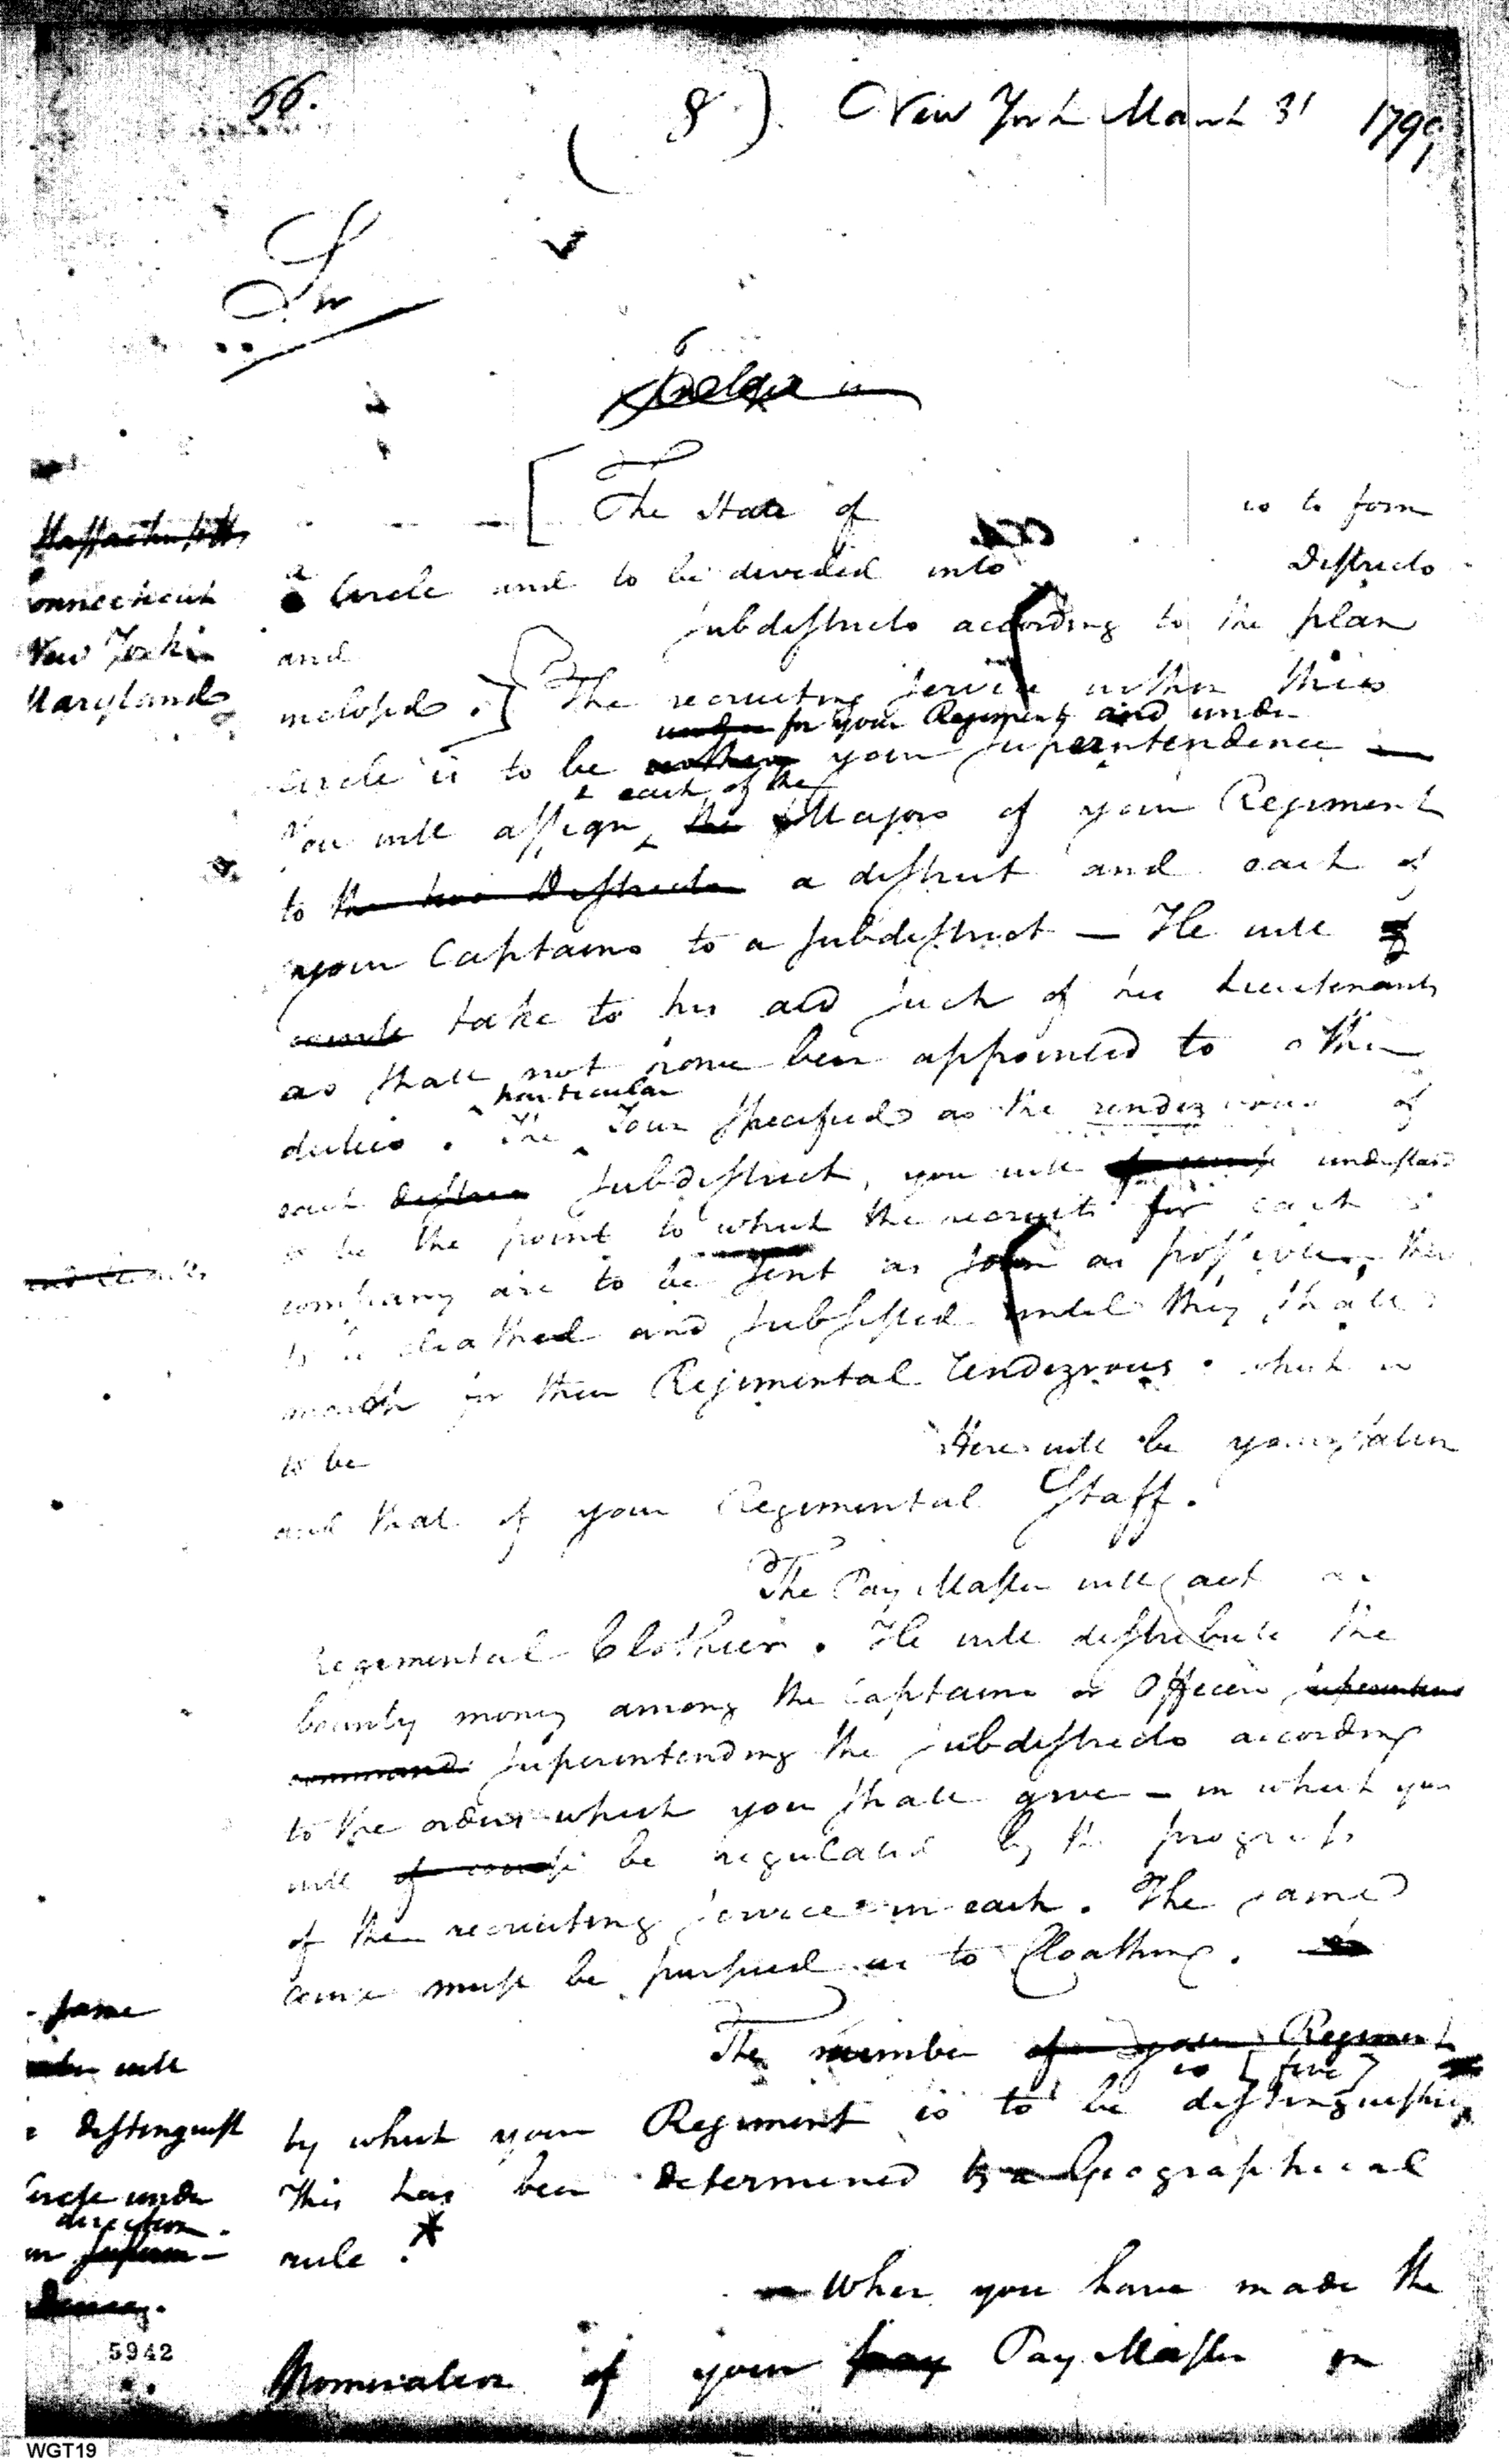 66.
(8). New York March 31 1799
Sir
The State of is to form
Massachusetts
a Circle and to be divided into Districts
Connecticut
New York
Maryland
and subdistricts according to the plan
inclosed.] The recruiting service within this
for your Regiment and under
Circle is to be your superintendence —
each of the
You will assign the Majors of your Regiment
to the two Districts a district and each of
your Captains to a subdistrict — He will
take to his aid such of his Lieutenants
as shall not have been appointed to other
particular
duties. The Town specified as the rendezvous of
each subdistrict, you will of course understand
to be the point to which the recruits for each
company are to be sent as soon as possible, there
to be cloathed and subsisted until they shall
march for their Regimental rendezvous. which is
to be Here will be your station
and that of your Regimental Staff.
The Pay Master will act as
Regimental Clothier. He will distribute the
bounty money among the Captains or Officers
command superintending the subdistricts according
to the orders which you shall give — in which you
will of course be regulated by the progress
of the recruiting service in each. The same
course must be pursued as to Cloathing.
same
The number of your Regiment
will
is [five]
distinguish
by which your Regiment is to be distinguished
Circle under
This has been determined by a Geographical
direction.
rule.*
When you have made the
5942
Nomination of your Pay Master on
WGT19